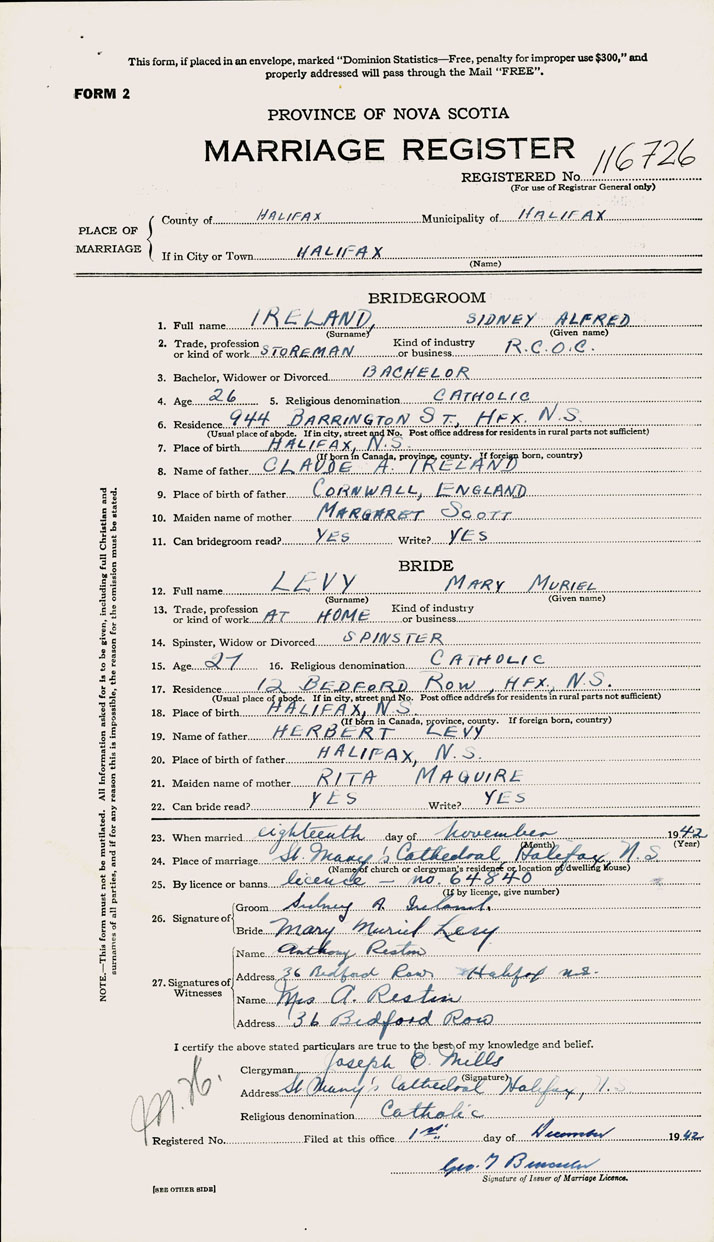 This form, if placed in an envelope, marked "Dominion Statistics—Free, penalty for improper use $300," and
properly addressed will pass through the Mail "FREE".
FORM 2
PROVINCE OF NOVA SCOTIA
MARRIAGE REGISTER
REGISTERED No. 116726
(For use of Registrar General only)
PLACE OF MARRIAGE
County of HALIFAX Municipality of HALIFAX
If in City or Town HALIFAX
(Name)
BRIDEGROOM
1. Full name IRELAND, SIDNEY ALFRED
(Surname) (Given name)
2. Trade, profession or kind of work STOREMAN Kind of industry or business R.C.O.C.
3. Bachelor, Widower or Divorced BACHELOR
4. Age 26 5. Religious denomination CATHOLIC
6. Residence 944 BARRINGTON ST., HFX. N.S.
(Usual place of abode. If in city, street and No. Post office address for residents in rural parts not sufficient)
7. Place of birth HALIFAX, N.S.
(If born in Canada, province, county. If foreign born, country)
8. Name of father CLAUDE A. IRELAND
9. Place of birth of father CORNWALL, ENGLAND
10. Maiden name of mother MARGARET SCOTT
11. Can bridegroom read? YES Write? YES
BRIDE
12. Full name LEVY MARY MURIEL
(Surname) (Given name)
13. Trade, profession or kind of work AT HOME Kind of industry or business
14. Spinster, Widow or Divorced SPINSTER
15. Age 27 16. Religious denomination CATHOLIC
17. Residence 12 BEDFORD ROW, HFX, N.S.
(Usual place of abode. If in city, street and No. Post office address for residents in rural parts not sufficient)
18. Place of birth HALIFAX, N.S.
(If born in Canada, province, county. If foreign born, country)
19. Name of father HERBERT LEVY
20. Place of birth of father HALIFAX, N.S.
21. Maiden name of mother RITA MAGUIRE
22. Can bride read? YES Write? YES
23. When married eighteenth day of November 1942
(Month) (Year)
24. Place of marriage St. Mary's Cathedral, Halifax, N.S.
(Name of church or clergyman's residence or location of dwelling house)
25. By licence or banns licence – no. 64840
(If by licence, give number)
26. Signature of
Groom Sidney A. Ireland.
Bride Mary Muriel Levy
27. Signatures of Witnesses
Name Anthony Restin
Address 36 Bedford Row Halifax n.s.
Name Mrs A. Restin
Address 36 Bedford Row
I certify the above stated particulars are true to the best of my knowledge and belief.
Clergyman Joseph B. Mills
(Signature)
Address St. Mary's Cathedral Halifax, N.S.
Religious denomination Catholic
Registered No. Filed at this office 1st day of December 1942
Geo. T
Signature of Issuer of Marriage Licence.
[SEE OTHER SIDE]
NOTE.—This form must not be mutilated. All information asked for is to be given, including full Christian and
surnames of all parties, and if for any reason this is impossible, the reason for the omission must be stated.